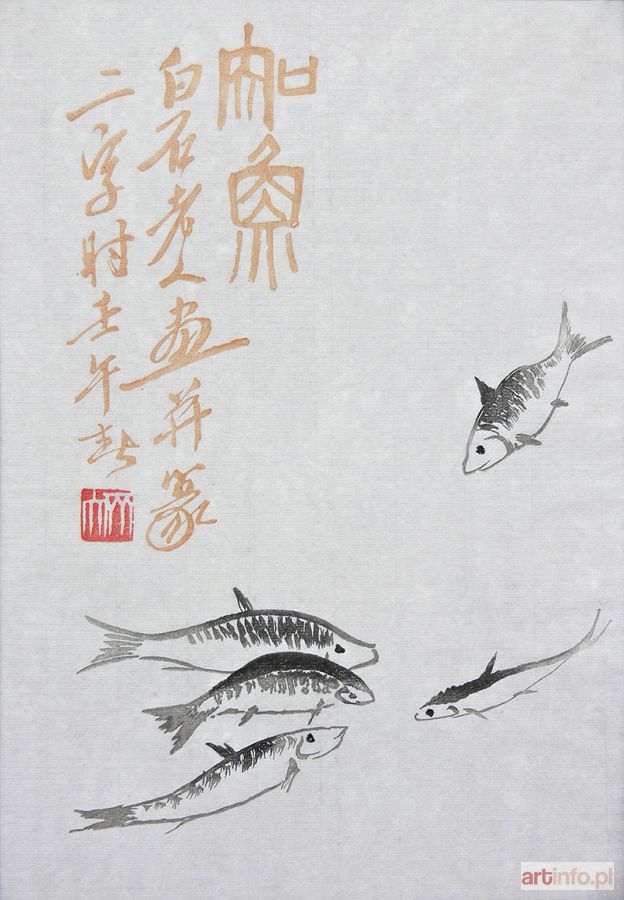 如魚
白石老人画并篆
二字时壬午春
artinfo.pl